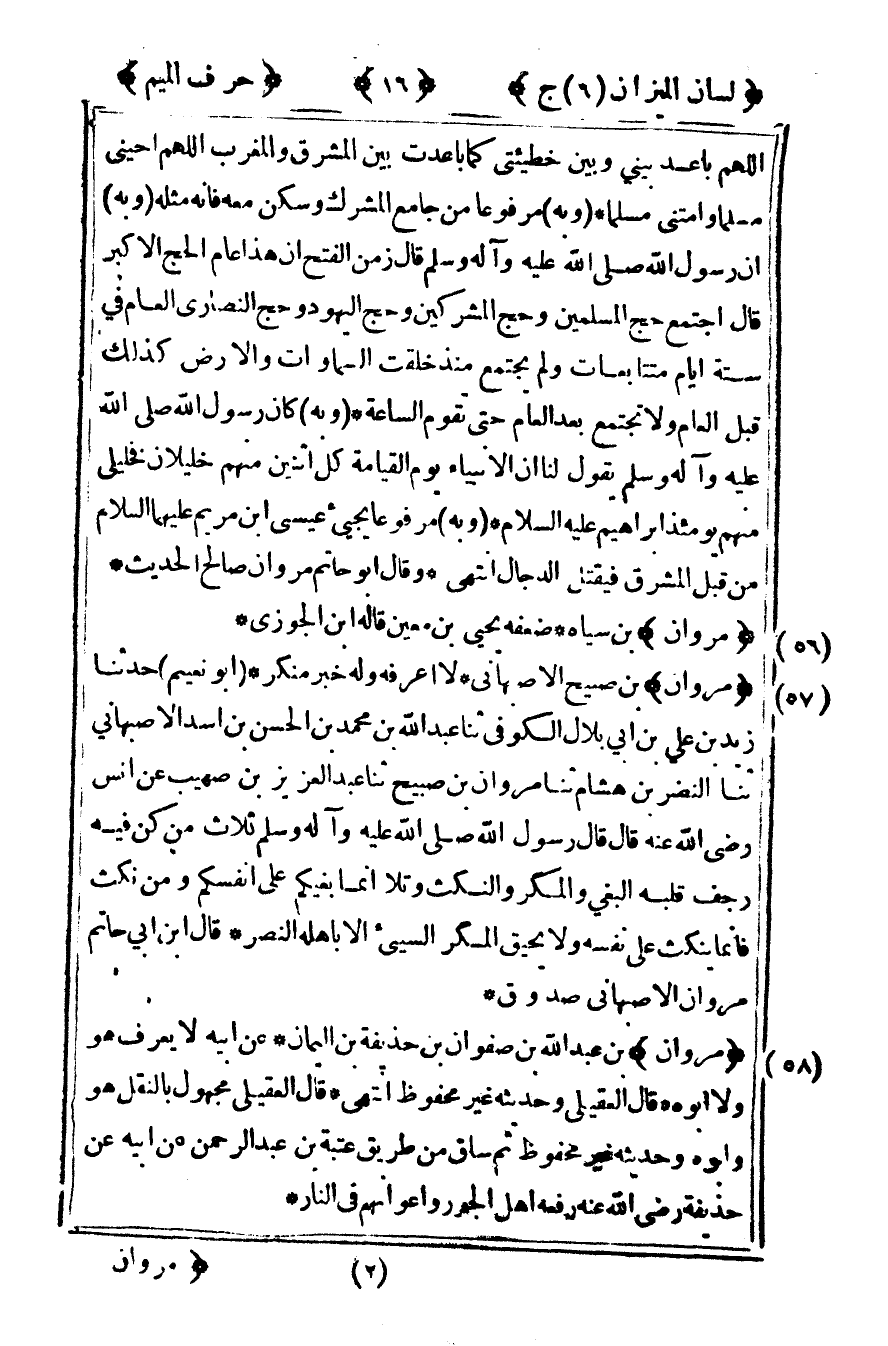 ﴿ لسان الميزان (٦) ج ﴾ ﴿ ١٦ ﴾ ﴿ حرف الميم ﴾
اللهم باعد بيني وبين خطيئتى كما باعدت بين المشرق والمغرب اللهم احينى
مسلما وامتنى مسلما * (وبه) مرفوعا من جامع المشرك وسكن معه فانه مثله (وبه)
ان رسول الله صلى الله عليه وآله وسلم قال زمن الفتح ان هذا عام الحج الاكبر
قال اجتمع حج المسلمين وحج المشركين وحج اليهود وحج النصارى العام في
ستة ايام متتابعات ولم يجتمع منذ خلقت السماوات والارض كذلك
قبل العام ولا تجتمع بعد العام حتى تقوم الساعة * (وبه) كان رسول الله صلى الله
عليه وآله وسلم يقول لنا ان الانبياء يوم القيامة كل اثنين منهم خليلان فخليلى
منهم يومئذ ابراهيم عليه السلام * (وبه) مرفوعا يجيئ عيسى ابن مريم عليهما السلام
من قبل المشرق فيقتل الدجال انتهى * وقال ابو حاتم مروان صالح الحديث *
(٥٦) ﴿ مروان ﴾ بن سياه * ضعفه يحيى بن معين قاله ابن الجوزى *
(٥٧) ﴿ مروان ﴾ بن صبيح الاصبهانى * لا اعرفه وله خبر منكر * (ابو نعيم) حدثنا
زيد بن علي بن ابي بلال السكوفى ثنا عبد الله بن محمد بن الحسن بن اسد الاصبهاني
ثنا النضر بن هشام ثنا مروان بن صبيح ثنا عبد العزيز بن صهيب عن انس
رضى الله عنه قال قال رسول الله صلى الله عليه وآله وسلم ثلاث من كن فيه
رجف قلبه البغي والمكر والنكث وتلا انما بغيكم على انفسكم ومن نكث
فانما ينكث على نفسه ولا يحيق المكر السيئ الا باهله النصر * قال ابن ابي حاتم
مروان الاصبهانى صدوق *
(٥٨) ﴿ مروان ﴾ بن عبد الله بن صفوان بن حذيفة بن اليمان * عن ابيه لا يعرف هو
ولا ابوه * قال العقيلى وحديثه غير محفوظ انتهى * قال العقيلى مجهول بالنقل هو
وابوه وحديثه غير محفوظ ثم ساق من طريق عتبة بن عبد الرحمن عن ابيه عن
حذيفة رضى الله عنه رفعه اهل الجور واعوانهم فى النار *
(٢) ﴿ مروان